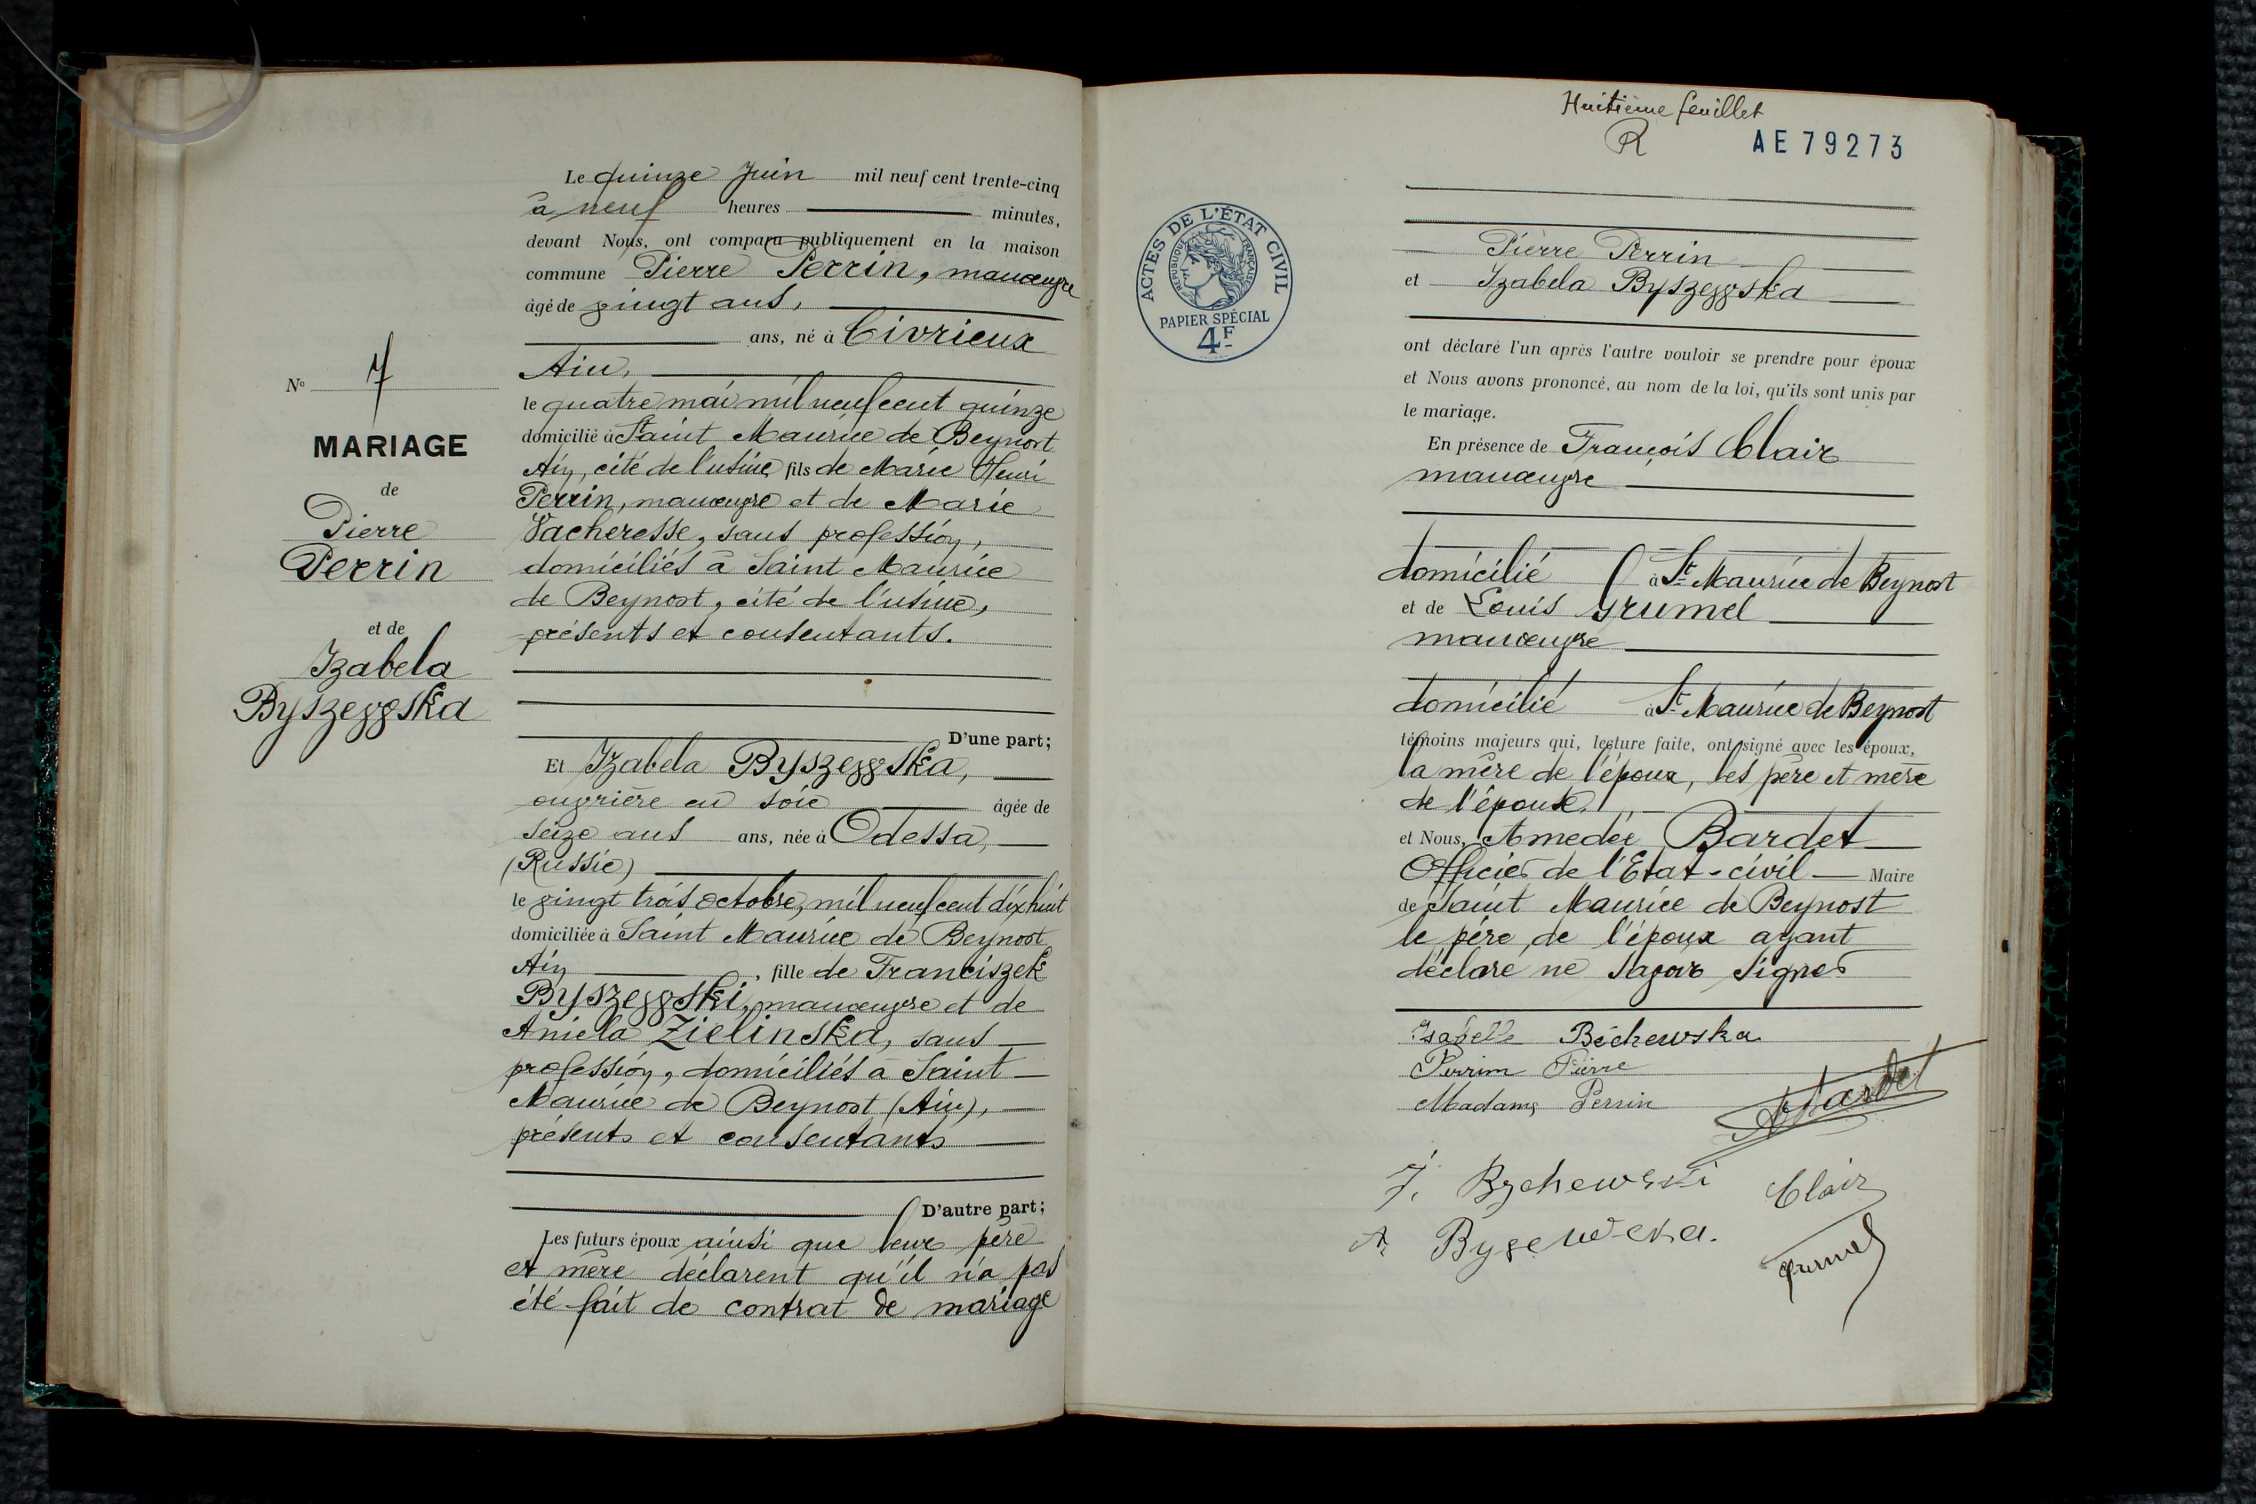 Le quinze Juin mil neuf cent trente-cinq
à neuf heures minutes,
devant Nous, ont comparu publiquement en la maison
commune Pierre Perrin, manœuvre
âgé de vingt ans,
ans, né à Civrieux
Ain,
le quatre mai mil neuf cent quinze
domicilié à Saint Maurice de Beynost
Ain, cité de l'usine, fils de Marie Henri
Perrin, manœuvre et de Marie
Vacheresse, sans profession,
domiciliés à Saint Maurice
de Beynost, cité de l'usine,
présents et consentants.
D'une part;
Et Izabela Byszewska,
ouvrière en soie âgée de
seize ans ans, née à Odessa,
(Russie)
le vingt trois octobre, mil neuf cent dix huit
domiciliée à Saint Maurice de Beynost
Ain, fille de Franciszek
Byszewski, manœuvre et de
Aniela Zielinska, sans
profession, domiciliés à Saint
Maurice de Beynost (Ain),
présents et consentants
D'autre part;
Les futurs époux ainsi que leurs père
et mère déclarent qu'il n'a pas
été fait de contrat de mariage
N° 7
MARIAGE
de
Pierre
Perrin
et de
Izabela
Byszewska
Huitième feuillet
R
AE 79273
ACTES DE L'ÉTAT CIVIL
RÉPUBLIQUE FRANÇAISE
PAPIER SPÉCIAL
4F
Pierre Perrin
et Izabela Byszewska
ont déclaré l'un après l'autre vouloir se prendre pour époux
et Nous avons prononcé, au nom de la loi, qu'ils sont unis par
le mariage.
En présence de François Clair
manœuvre
domicilié à St Maurice de Beynost
et de Louis Grumel
manœuvre
domicilié à St Maurice de Beynost
témoins majeurs qui, lecture faite, ont signé avec les époux,
la mère de l'époux, les père et mère
de l'épouse,
et Nous, Amedée Bardet
Officier de l'Etat-civil Maire
de Saint Maurice de Beynost
le père de l'époux ayant
déclaré ne savoir signer
Isabelle Béchewska
Perrin Pierre
Madame Perrin
ABardet
F. Bychewski
Clair
A Bysewska.
Grumel